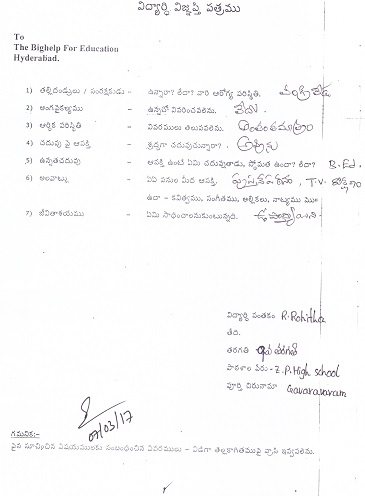 విద్యార్థి విజ్ఞప్తి పత్రము
To
The Bighelp For Education
Hyderabad.
1) తల్లిదండ్రులు / సంరక్షకుడు - ఉన్నారా? లేదా? వారి ఆరోగ్య పరిస్థితి. తండ్రి లేడు
2) అంగవైకల్యము - ఉన్నచో వివరించవలెను. లేదు
3) ఆర్థిక పరిస్థితి - వివరములు తెలుపవలెను. అంతంతమాత్రం
4) చదువు పై ఆసక్తి - శ్రద్ధగా చదువుచున్నారా? అవును
5) ఉన్నతచదువు - ఆసక్తి ఉంటే ఏమి చదువుతాడు. స్తోమత ఉందా? లేదా? B.Ed.
6) అలవాట్లు - ఏది పనుల మీద ఆసక్తి. T.V.
ఉదా - కవిత్వము, సంగీతము, ఆర్టికలు, నాట్యము మొ॥
7) జీవితాశయము - ఏమి సాధించాలనుకుంటున్నది.
విద్యార్థి సంతకం R. Rohitha
తేది.
తరగతి
పాఠశాల పేరు- Z.P. High school
పూర్తి చిరునామా Gavaravaram
07/03/17
గమనిక:-
పైన సూచించిన విషయములకు సంబంధించిన వివరములు - విడిగా తెల్లకాగితముపై వ్రాసి ఇవ్వవలెను.